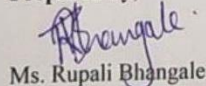 Bhangale.
Ms. Rupali Bhangale